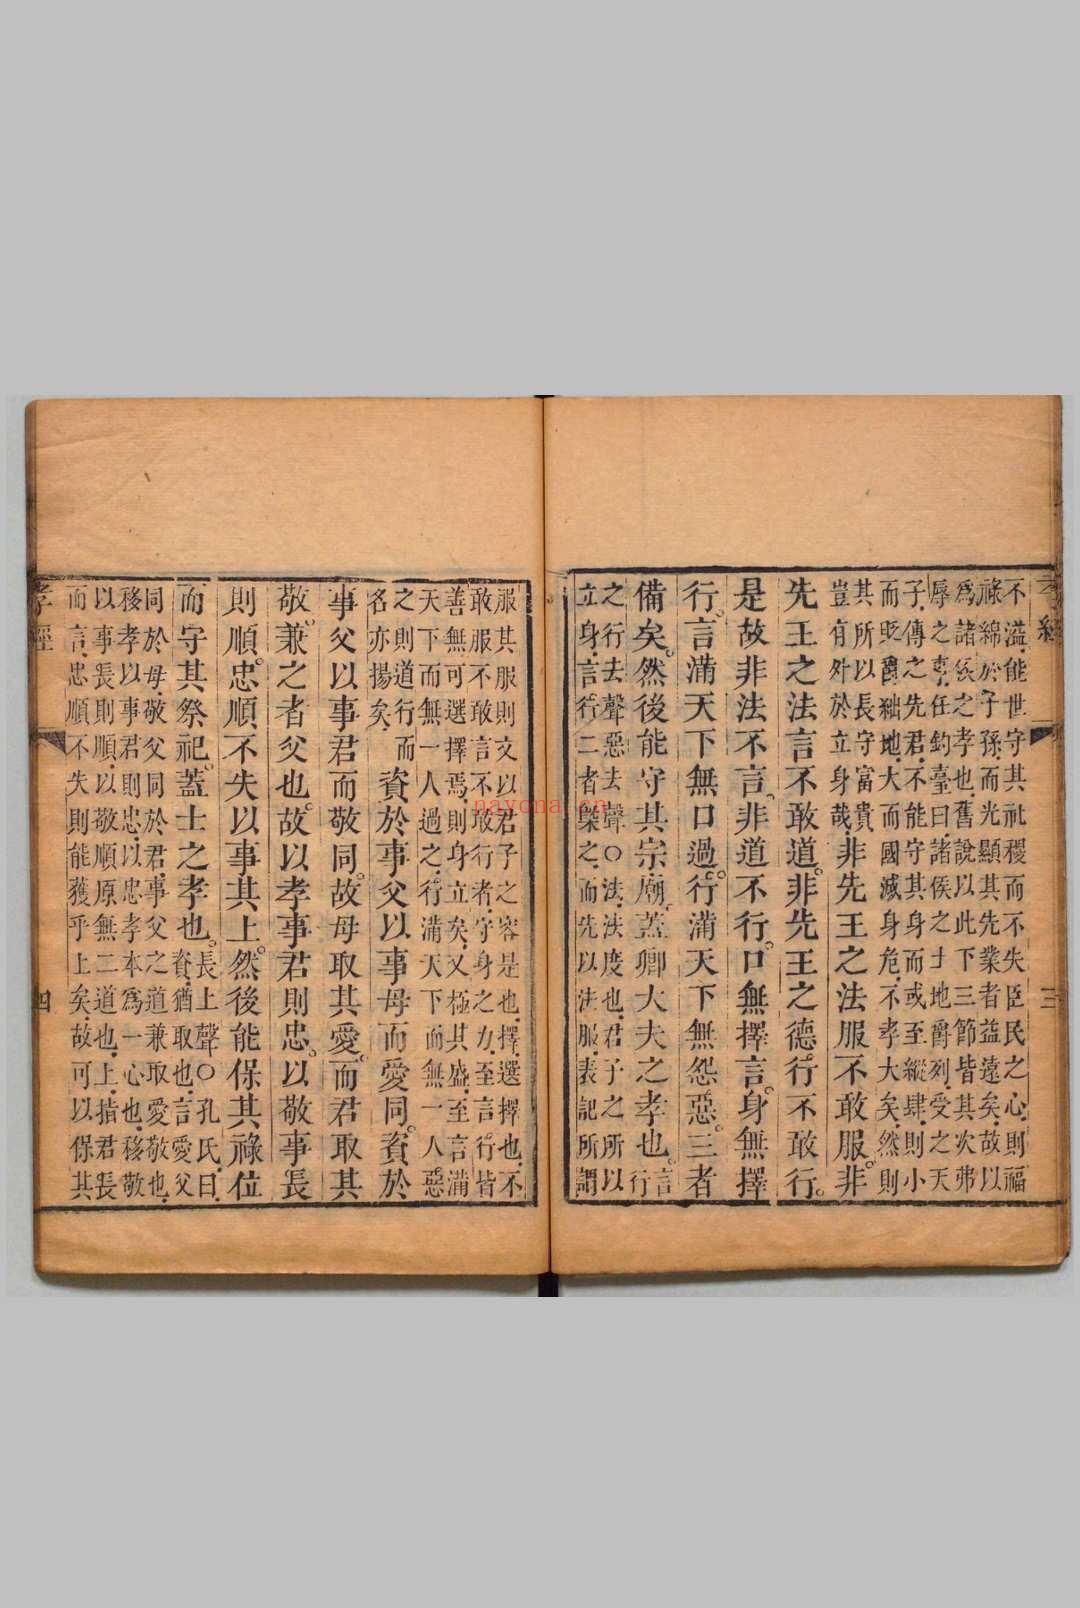 孝經
三
不溢、能世守其社稷而不失臣民之心、則福
祿綿於子孫、而光顯其先業者益遠矣、故以
爲諸侯之孝也、舊說以此下三節皆其次弗
辱之事、任釣臺曰、諸侯之士地爵列、受之天
子、傳之先君、不能守其身而或至縱肆、則小
而貶爵絀地、大而國滅身危、不孝大矣、然則
其所以長守富貴
豈有外於立身哉、
非先王之法服不敢服。非
先王之法言不敢道。非先王之德行不敢行。
是故非法不言。非道不行。口無擇言。身無擇
行。言滿天下無口過。行滿天下無怨惡。三者
備矣。然後能守其宗廟。蓋卿大夫之孝也。
言
行
之行去聲、惡去聲○法、法度也、君子之所以
立身、言行二者槩之、而先以法服、表記所謂
服其服則文以君子之容是也、擇、選擇也、不
敢服不敢言不敢行者、守身之力、至言行皆
善無可選擇焉、則身立矣、又極其盛、至言滿
天下而無一人過之、行滿天下而無一人惡
之、則道行而
名亦揚矣、
資於事父以事母而愛同。資於
事父以事君而敬同。故母取其愛。而君取其
敬。兼之者父也。故以孝事君則忠。以敬事長
則順。忠順不失以事其上。然後能保其祿位
而守其祭祀。蓋士之孝也。
長上聲○孔氏曰、
資、猶取也、言愛父
同於母、敬父同於君、事父之道兼取愛敬也、
移孝以事君則忠、以忠孝本爲一心也、移敬
以事長則順、以敬順原無二道也、上、指君長
而言、忠順不失則能獲乎上矣、故可以保其
孝經
四
nayona.cn